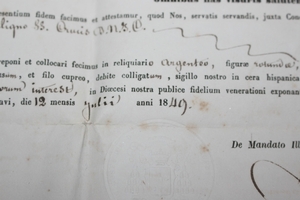 esentium fidem facimus et attestamur, quod Nos, servatis servandis, juxta Conc
S. Crucis D.N.J.C.
reponi et collocari fecimus in reliquiario Argenteo, figuræ rotundæ
et filo cupreo, debite colligatum, sigillo nostro in cera hispanica
interest), in Diœcesi nostra publice fidelium venerationi exponan
avi, die 12 mensis julii anni 1849.
De Mandato Ill